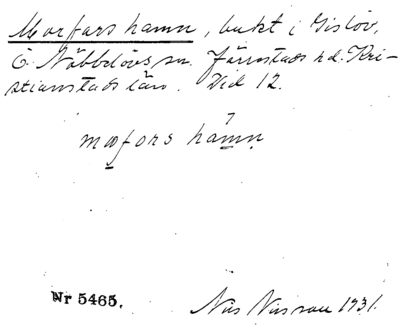 Morfars hamn, bukt i Gislöv,
Ö. Nöbbelövs sn. Järrestads hd. Kri-
stianstads län. Vid 12.
mo̲fo̲rs hám̲n̲
Nr 5465.
Nils 1931.